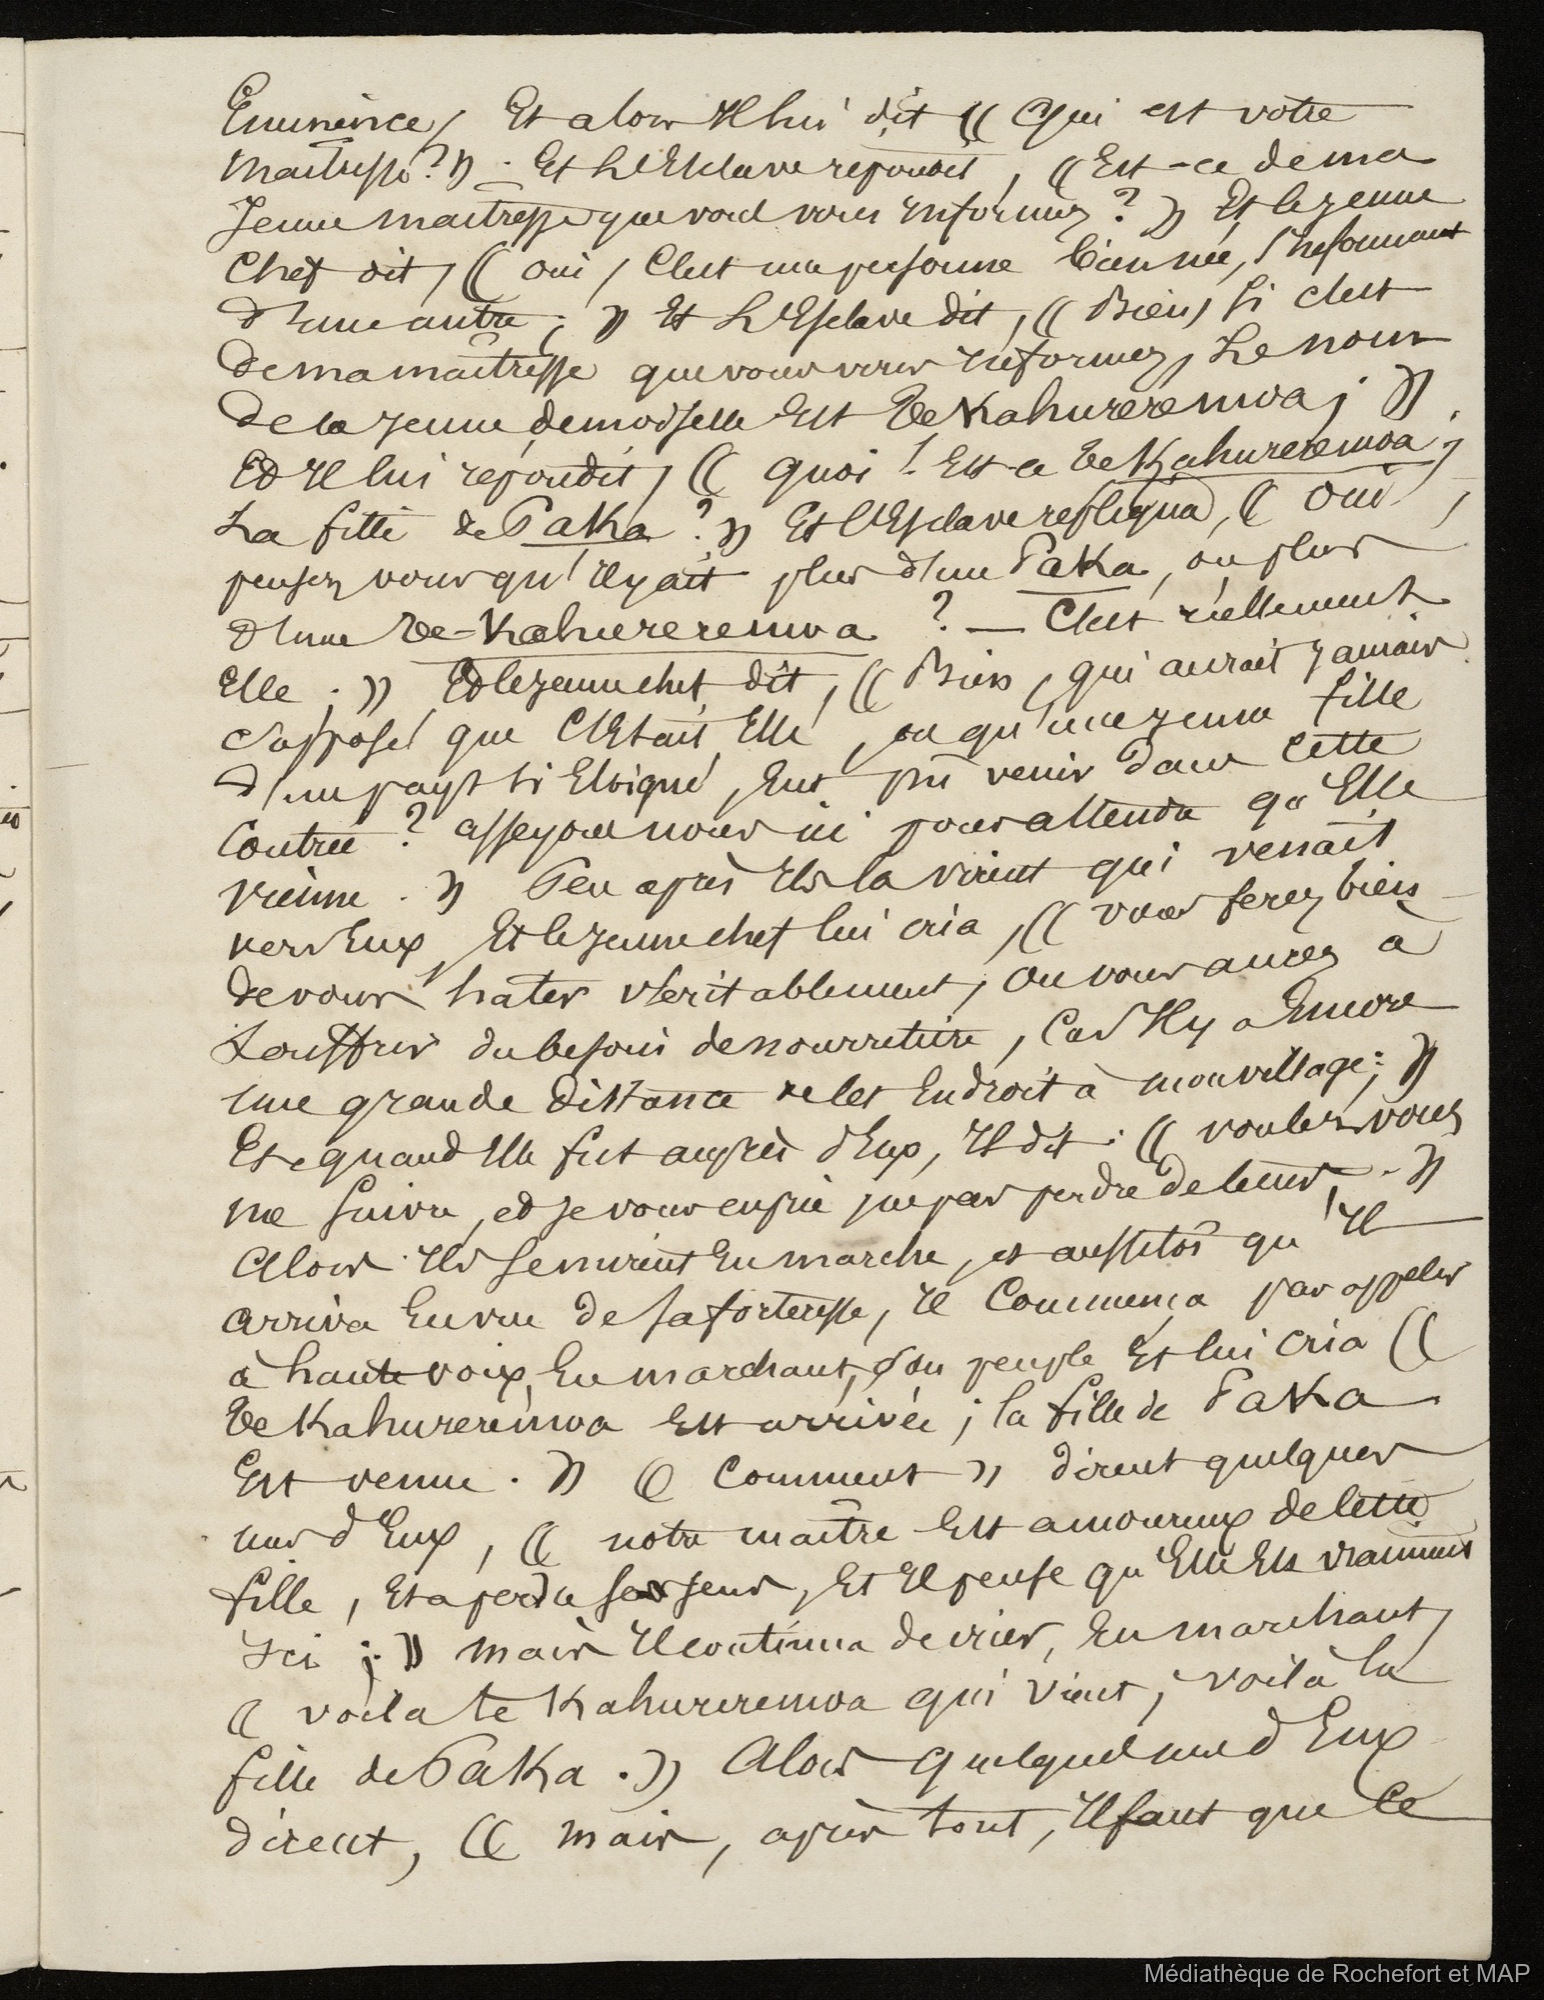 Eminence, Et alors Il lui dit (( Qui est votre
maitresse ? )) . Et L'Esclave repondit, (( Est-ce de ma
Jeune maitresse que vous vous informez ? )) Et le jeune
Chef dit, (( oui, C'est une personne bien née, s'informant
d'une autre ; )) Et L'Esclave dit, (( Bien, Si c'est
de ma maîtresse que vous vous informez, Le nom
de la jeune demoiselle Est Te Kahureremoa ; ))
Ed Il lui repondit, (( quoi ! Est-ce Te Kahureremoa,
La fille de PaKa ? )) Et l'Esclave repliqua, (( oui,
pensez vous qu'il y ait plus d'un PaKa, ou plus
d'une Te-Kahureremoa ? — C'est réellement
Elle ; )) Ed le jeune chef dit, (( Bien, qui aurait jamais
supposé que C'Etait Elle, ou qu'une jeune fille
d'un pays si Eloigné, eut pû venir dans cette
Contrée ? asseyons nous ici pour attendre qu'Elle
vienne . )) Peu après Ils la virent qui venait
vers Eux, Et le jeune chef lui cria, (( vous ferez bien
de vous hater veritablement, ou vous aurez à
Souffrir du besoin de nourriture, Car Il y a Encore
une grande distance de cet Endroit à mon village ; ))
Et quand Elle fut auprès d'Eux, Il dit : (( voulez vous
me suivre, ed je vous en prie ne pas perdre de tems, . ))
Alors Ils se mirent En marche, et aussitôt qu'Il
arriva En vue de sa forteresse, Il Commença par appeler
à haute voix, En marchant, son peuple Et lui cria ((
Te Kahureremoa Est arrivée ; la fille de PaKa
Est venue . )) (( Comment )) dirent quelques
uns d'Eux, (( notre maître Est amoureux de cette
fille, Et a perdu ses sens, Et Il pense qu'Elle Est vraiment
Ici ; )) mais Il continua de crier, En marchant,
(( voila te Kahureremoa qui vient, voilà la
fille de PaKa . )) Alors quelques uns d'Eux
dirent, (( mais, après tout, Il faut que Ce
Médiathèque de Rochefort et MAP